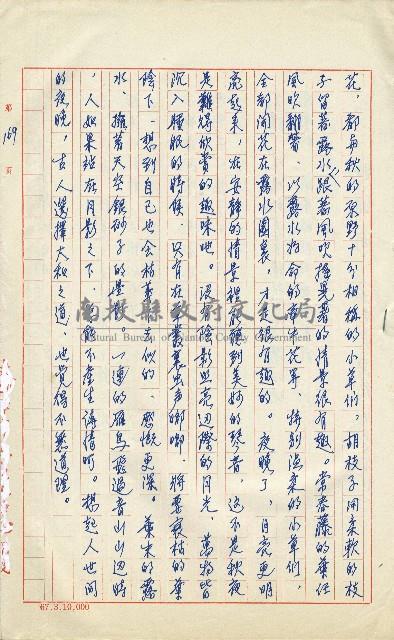 花，都與秋的原野十分相稱的小草們，胡枝子開柔軟的枝
子留著露水，跟著風吹搖晃著的情景很有趣。常春藤的葉任
風吹翻彎，以露水為命的牽牛花昇、特別溫柔的小草們，
全都開花在露水圍裏，才很有趣的。夜晚了，月亮更明
亮起來，在安靜的情景裡夜聽到美妙的琴音，這不是秋夜
是難得欣賞的趣味吧。沒陰影照亮邊際的月光，萬物皆
沉入睡眠的時候，只有在叢裏虫声唧唧，將要衰枯的葉
陰下，想到自己也會枯萎去似的，感慨更深。葉末的露
水，擁著天空銀砂子的星。一連的雁鳥飛過青山山邊時
，人如果站在月影之下，能不產生詩情呵。想起人世間
的夜晚，古人選擇大和之道，也覺得不無道理。
第 169 頁
南投縣政府文化局
Cultural Bureau of Nantou County Government
67.3.10,000